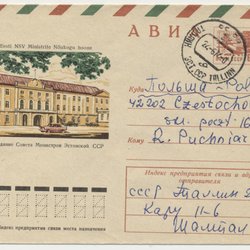 Eesti NSV Ministrite Nõukogu hoone
АВИА
TALLINN
Здание Совета Министров Эстонской ССР
Куда Польша - Pol
42202 Częstocho
Кому R. Puchoja
Индекс предприятия связи и адрес
отправителя
СССР Таллин
Кару 11-6
Индекс предприятия связи места назначения